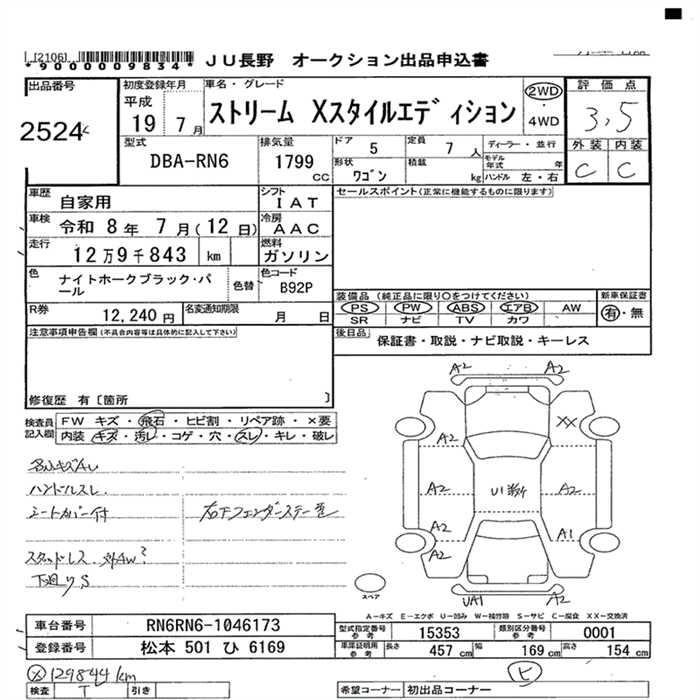 [2106]
*9000009834*
JU長野 オークション出品申込書
出品番号
2524
初度登録年月
平成
19 7月
車名・グレード
ストリーム Xスタイルエディション
2WD
・
4WD
評価点
3,5
外装 内装
C C
型式
DBA-RN6
排気量
1799
CC
ドア 5
形状 ワゴン
定員 7 人
積載 kg
ディーラー・並行
モデル年式 年
ハンドル 左・右
車歴 自家用
シフト IAT
車検 令和 8年 7月(12日)
冷房 AAC
走行 12万9千843 km
燃料 ガソリン
色 ナイトホークブラック・パール
色替
色コード B92P
R券 12,240 円
名変通知期限 月 日
セールスポイント(正常に機能するものに限ります)
装備品(純正品に限り○をつけてください)
PS PW ABS エアB AW
SR ナビ TV カワ
新車保証書
有・無
後日品
保証書・取説・ナビ取説・キーレス
注意事項申告欄(不具合内容等は具体的に記入して下さい)
修復歴 有〔箇所 〕
検査員記入欄
FW キズ・飛石・ヒビ割・リペア跡・×要
内装 キズ・汚レ・コゲ・穴・スレ・キレ・破レ
ハンドルスレ
シートカバー付
スタッドレス
下廻りS
右Fフェンダーステー歪
A2 A2
A2 XX
A2 U1 A2
A2 A1
A2
UA1 A2
スペア
A－キズ E－エクボ U－凹み W－補修跡 S－サビ C－腐食 XX－交換済
車台番号 RN6RN6-1046173
登録番号 松本 501 ひ 6169
型式指定番号 参考 15353
類別区分番号 参考 0001
車庫証明用 参考 長さ 457 cm 幅 169 cm 高さ 154 cm
129844km
検査 T 引き
ヒ
希望コーナー 初出品コーナー